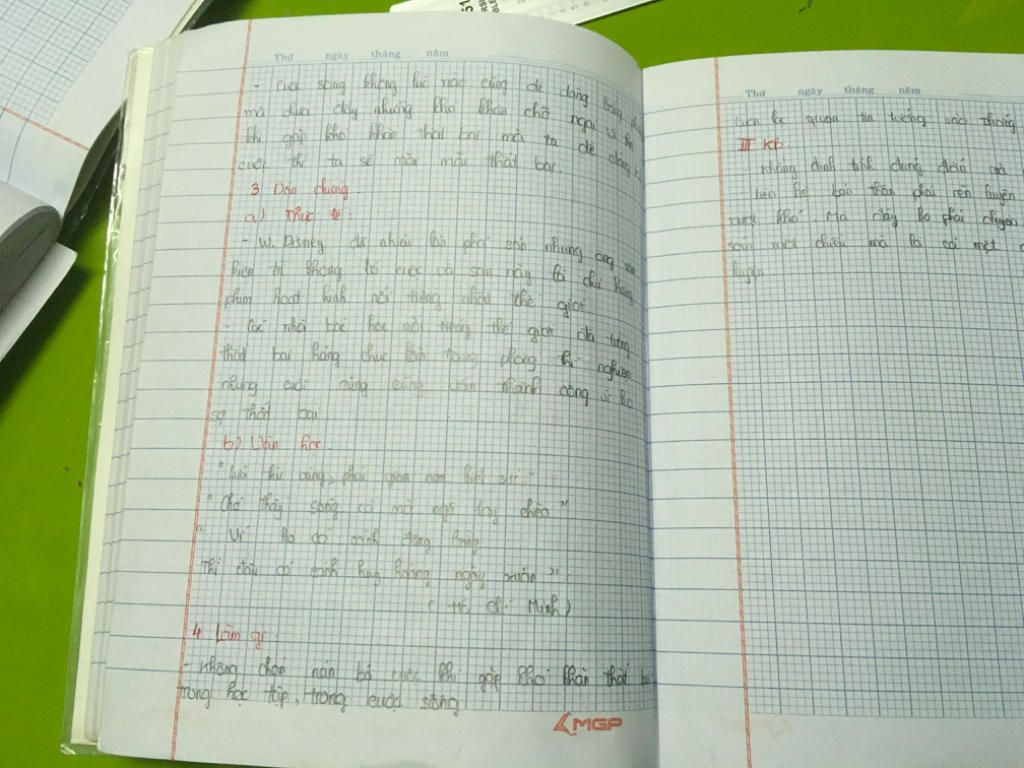 51
Thứ ngày tháng năm
- cuộc sống không lúc nào cũng dễ dàng
mà chứa đầy những khó khăn chờ ngại vì thế
khi gặp khó khăn thất bại mà ta dễ dàng
cuộc thì ta sẽ mãi mãi thất bại.
3 Dẫn chứng
a) Thực tế:
- W. Disney đã nhiều lần phá sản nhưng ông vẫn
kiên trì không bỏ cuộc và sau này là chủ hãng
phim hoạt hình nổi tiếng nhất thế giới
- Các nhà bác học nổi tiếng thế giới đã từng
thất bại hàng chục lần trong phòng thí nghiệm
nhưng cuối cùng cũng vẫn thành công vì ko
sợ thất bại
b) Văn học.
"Lửa thử vàng, gian nan sức"
"Chớ thấy sóng cả mà ngã tay chèo"
" Ví ko có mình đông
Thì đâu có cảnh huy hoàng ngày xuân"
( Hồ Chí Minh )
4 Làm gì
- Không chán nản bỏ cuộc khi gặp khó khăn thất
trong học tập, trong cuộc sống
MGP
Thứ ngày tháng năm
lạc quan tin tưởng vào
III Kb
- Khẳng định tính đúng đắn
- Liên hệ bản thân phải rèn luyện
vượt khó. Mà đây ko phải chuyện
một chiều mà là cả một
luyện